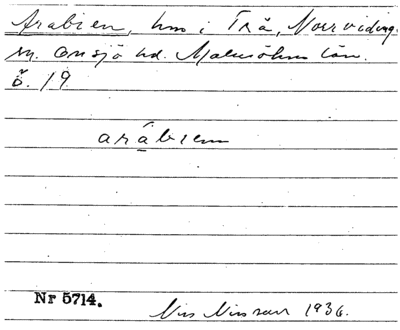 Arabien, hm i Trä, Norrvidinge
sn. Onsjö hd. Malmöhus län.
ö. 19
arâbien
Nr 5714.
Nils Nilsson 1936.